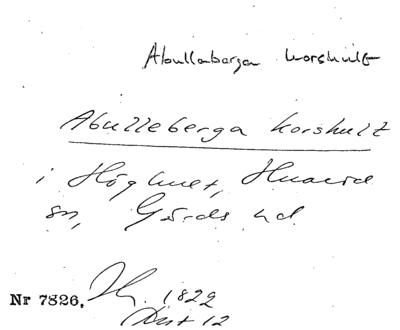 Abullaberga korshult
Abulleberga korshult
i Höghult, Huaröd
sn, Gärds hd
Nr 7826. 1822
Art 12